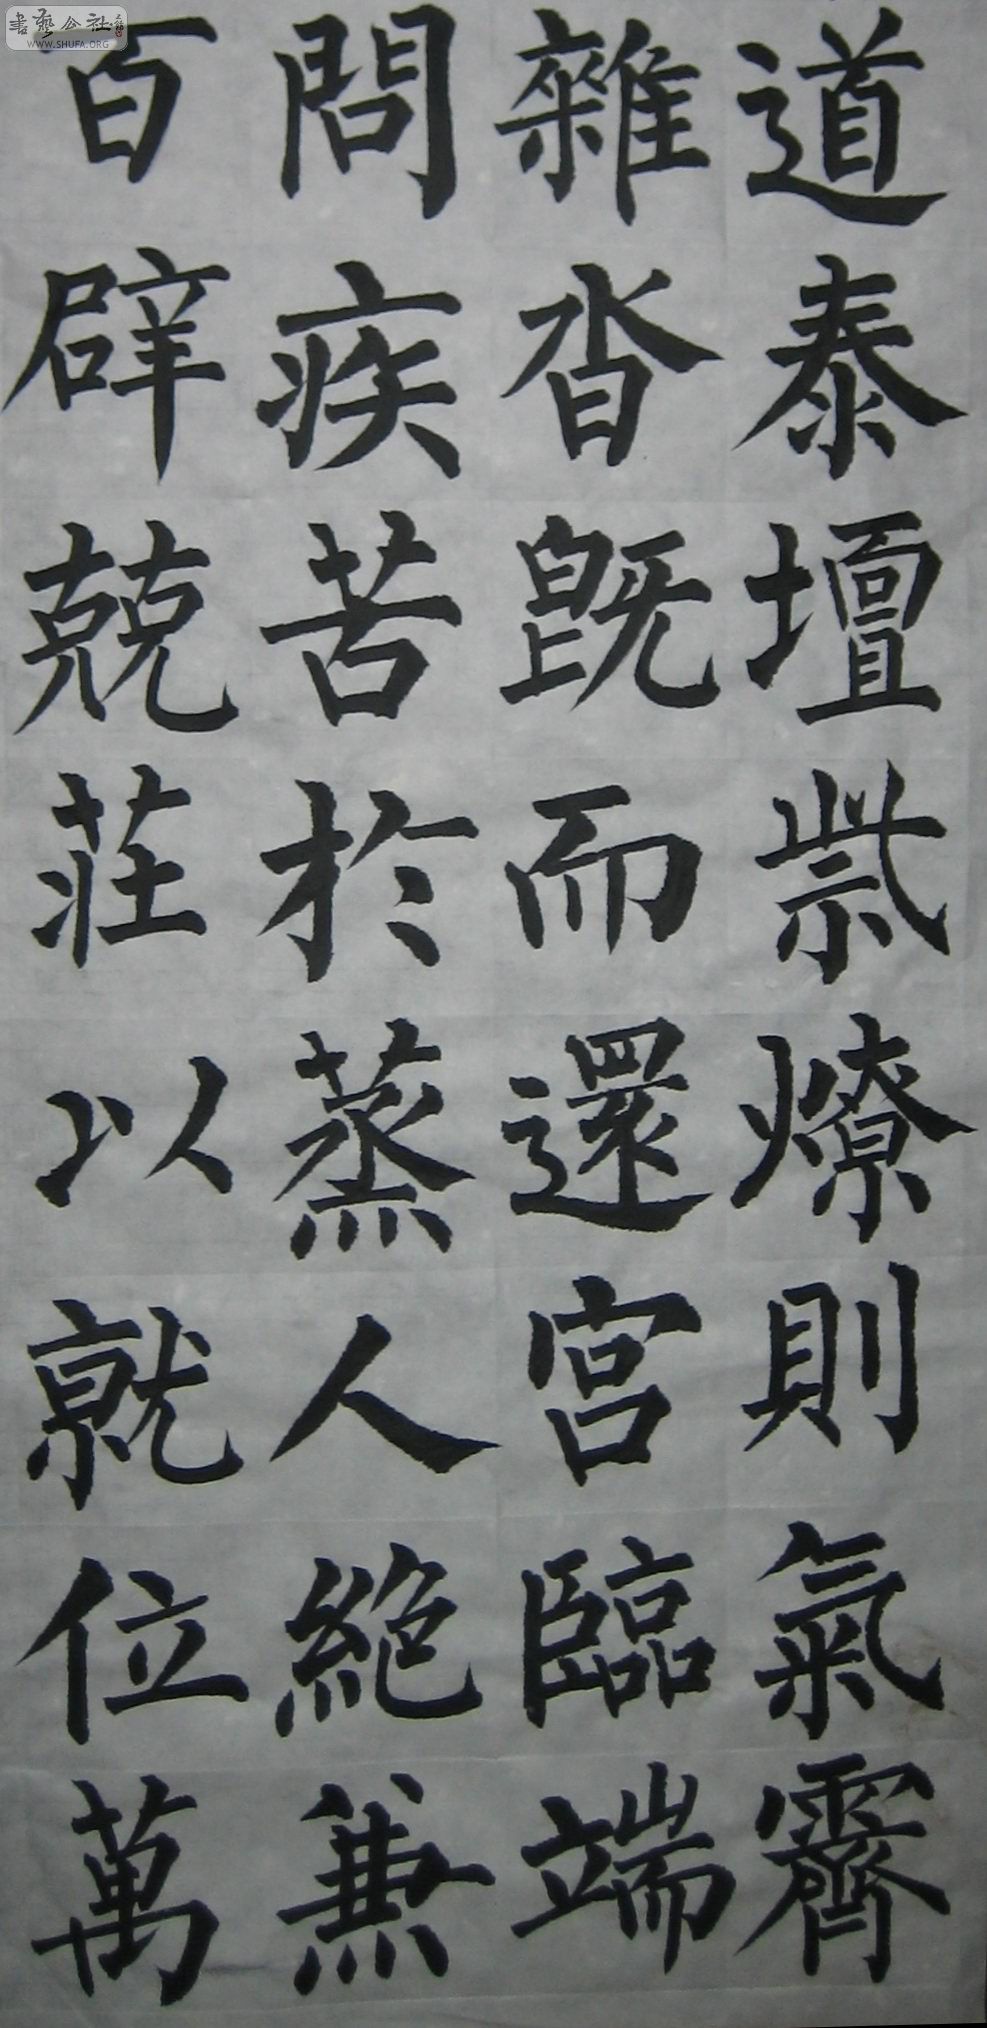 道泰壇祡燎則氣霽
雜沓既而還宮臨端
問疾苦於蒸人絶兼
百辟兢莊以就位萬
書藝公社
WWW.SHUFA.ORG